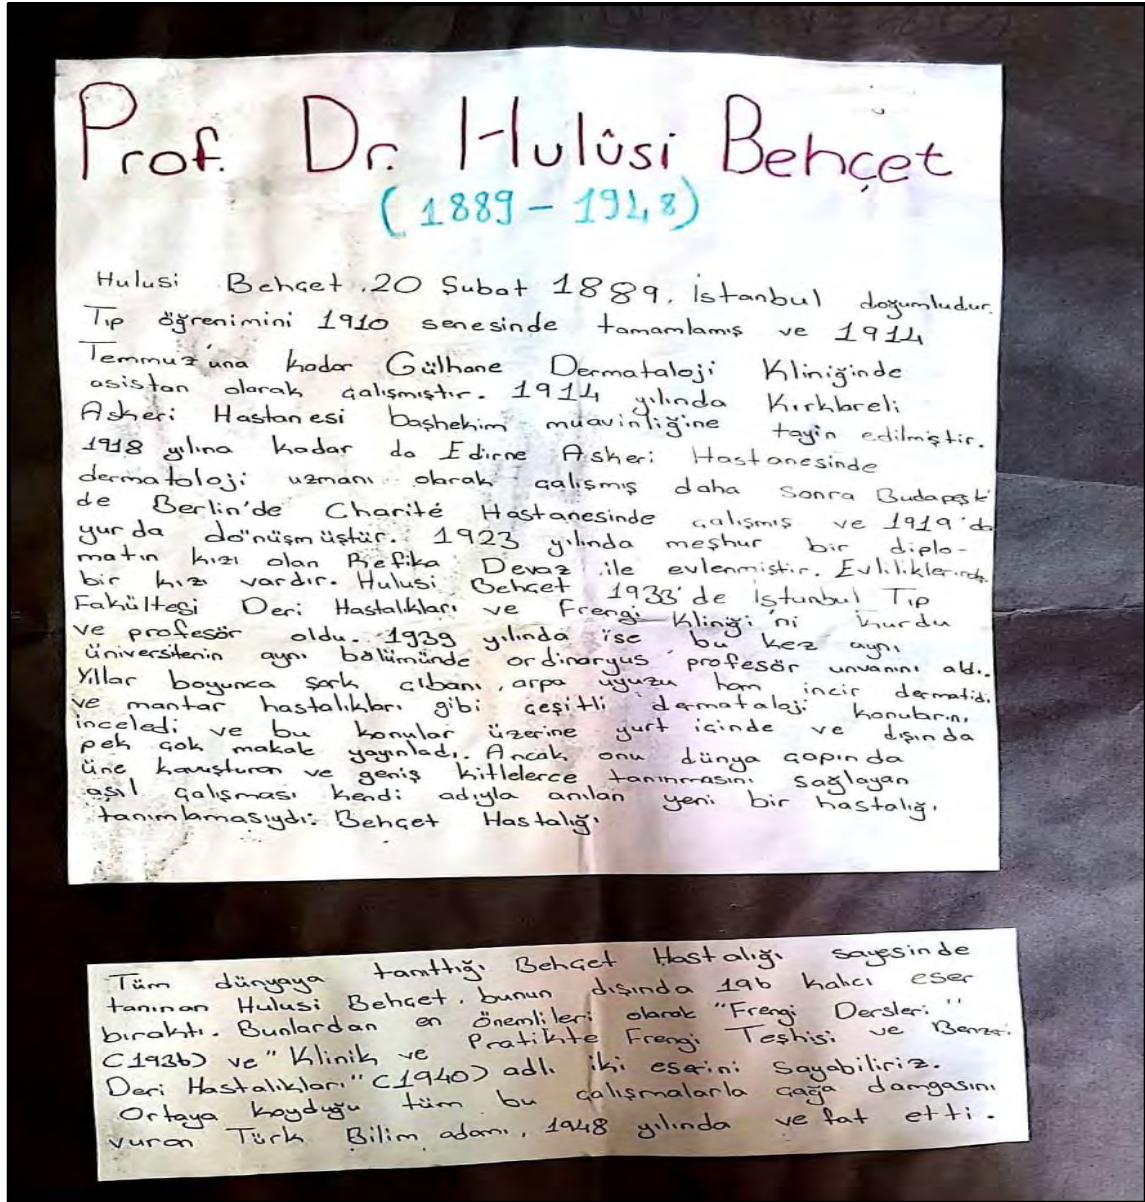 Prof. Dr. Hulûsi Behçet
(1889-1948)
Hulusi Behçet, 20 Şubat 1889, İstanbul doğumludur.
Tıp öğrenimini 1910 senesinde tamamlamış ve 1914
Temmuz'una kadar Gülhane Dermataloji Kliniğinde
asistan olarak çalışmıştır. 1914 yılında Kırklareli
Askeri Hastanesi başhekim muavinliğine tayin edilmiştir.
1918 yılına kadar da Edirne Askeri Hastanesinde
dermatoloji uzmanı olarak çalışmış daha sonra Budapeşte'
de Berlin'de Charité Hastanesinde çalışmış ve 1919'da
yurda dönüşmüştür. 1923 yılında meşhur bir diplo-
matın kızı olan Refika Devaz ile evlenmiştir. Evliliklerinde
bir kızı vardır. Hulusi Behçet 1933'de İstanbul Tıp
Fakültesi Deri Hastalıkları ve Frengi Kliniği'ni kurdu
ve profesör oldu. 1939 yılında ise bu kez aynı
üniversitenin aynı bölümünde ordinaryus profesör unvanını aldı.
Yıllar boyunca şark çıbanı, arpa uyuzu ham incir dermatidi
ve mantar hastalıkları gibi çeşitli dermataloji konularını
inceledi ve bu konular üzerine yurt içinde ve dışında
pek çok makale yayınladı. Ancak onu dünya çapında
üne kavuşturan ve geniş kitlelerce tanınmasını sağlayan
asıl çalışması kendi adıyla anılan yeni bir hastalığı
tanımlamasıydı: Behçet Hastalığı
Tüm dünyaya tanıttığı Behçet Hastalığı sayesinde
tanınan Hulusi Behçet, bunun dışında 196 kalıcı eser
bıraktı. Bunlardan en önemlileri olarak "Frengi Dersleri"
(1936) ve "Klinik ve Pratikte Frengi Teşhisi ve Benzeri
Deri Hastalıkları" (1940) adlı iki eserini sayabiliriz.
Ortaya koyduğu tüm bu çalışmalarla çağa damgasını
vuran Türk Bilim adamı, 1948 yılında vefat etti.